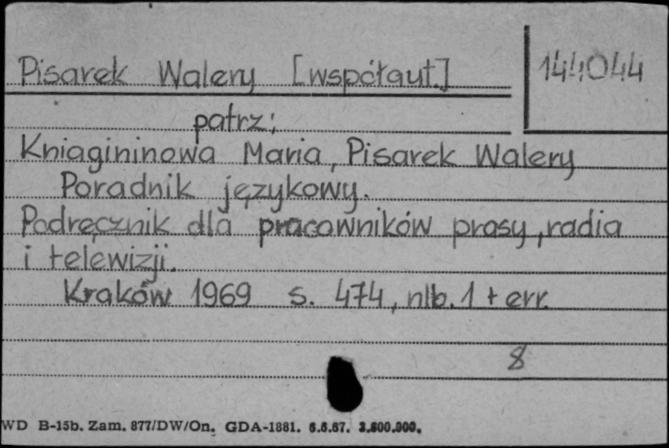 Pisarek Walery [współaut.]
144044
patrz:
Kniagininowa Maria, Pisarek Walery
Poradnik językowy.
Podręcznik dla pracowników prasy, radia
i telewizji.
Kraków 1969 s. 474, nlb. 1 + err.
8
WD B-15b. Zam. 877/DW/On. GDA-1881. 6.6.67. 3.600.000.